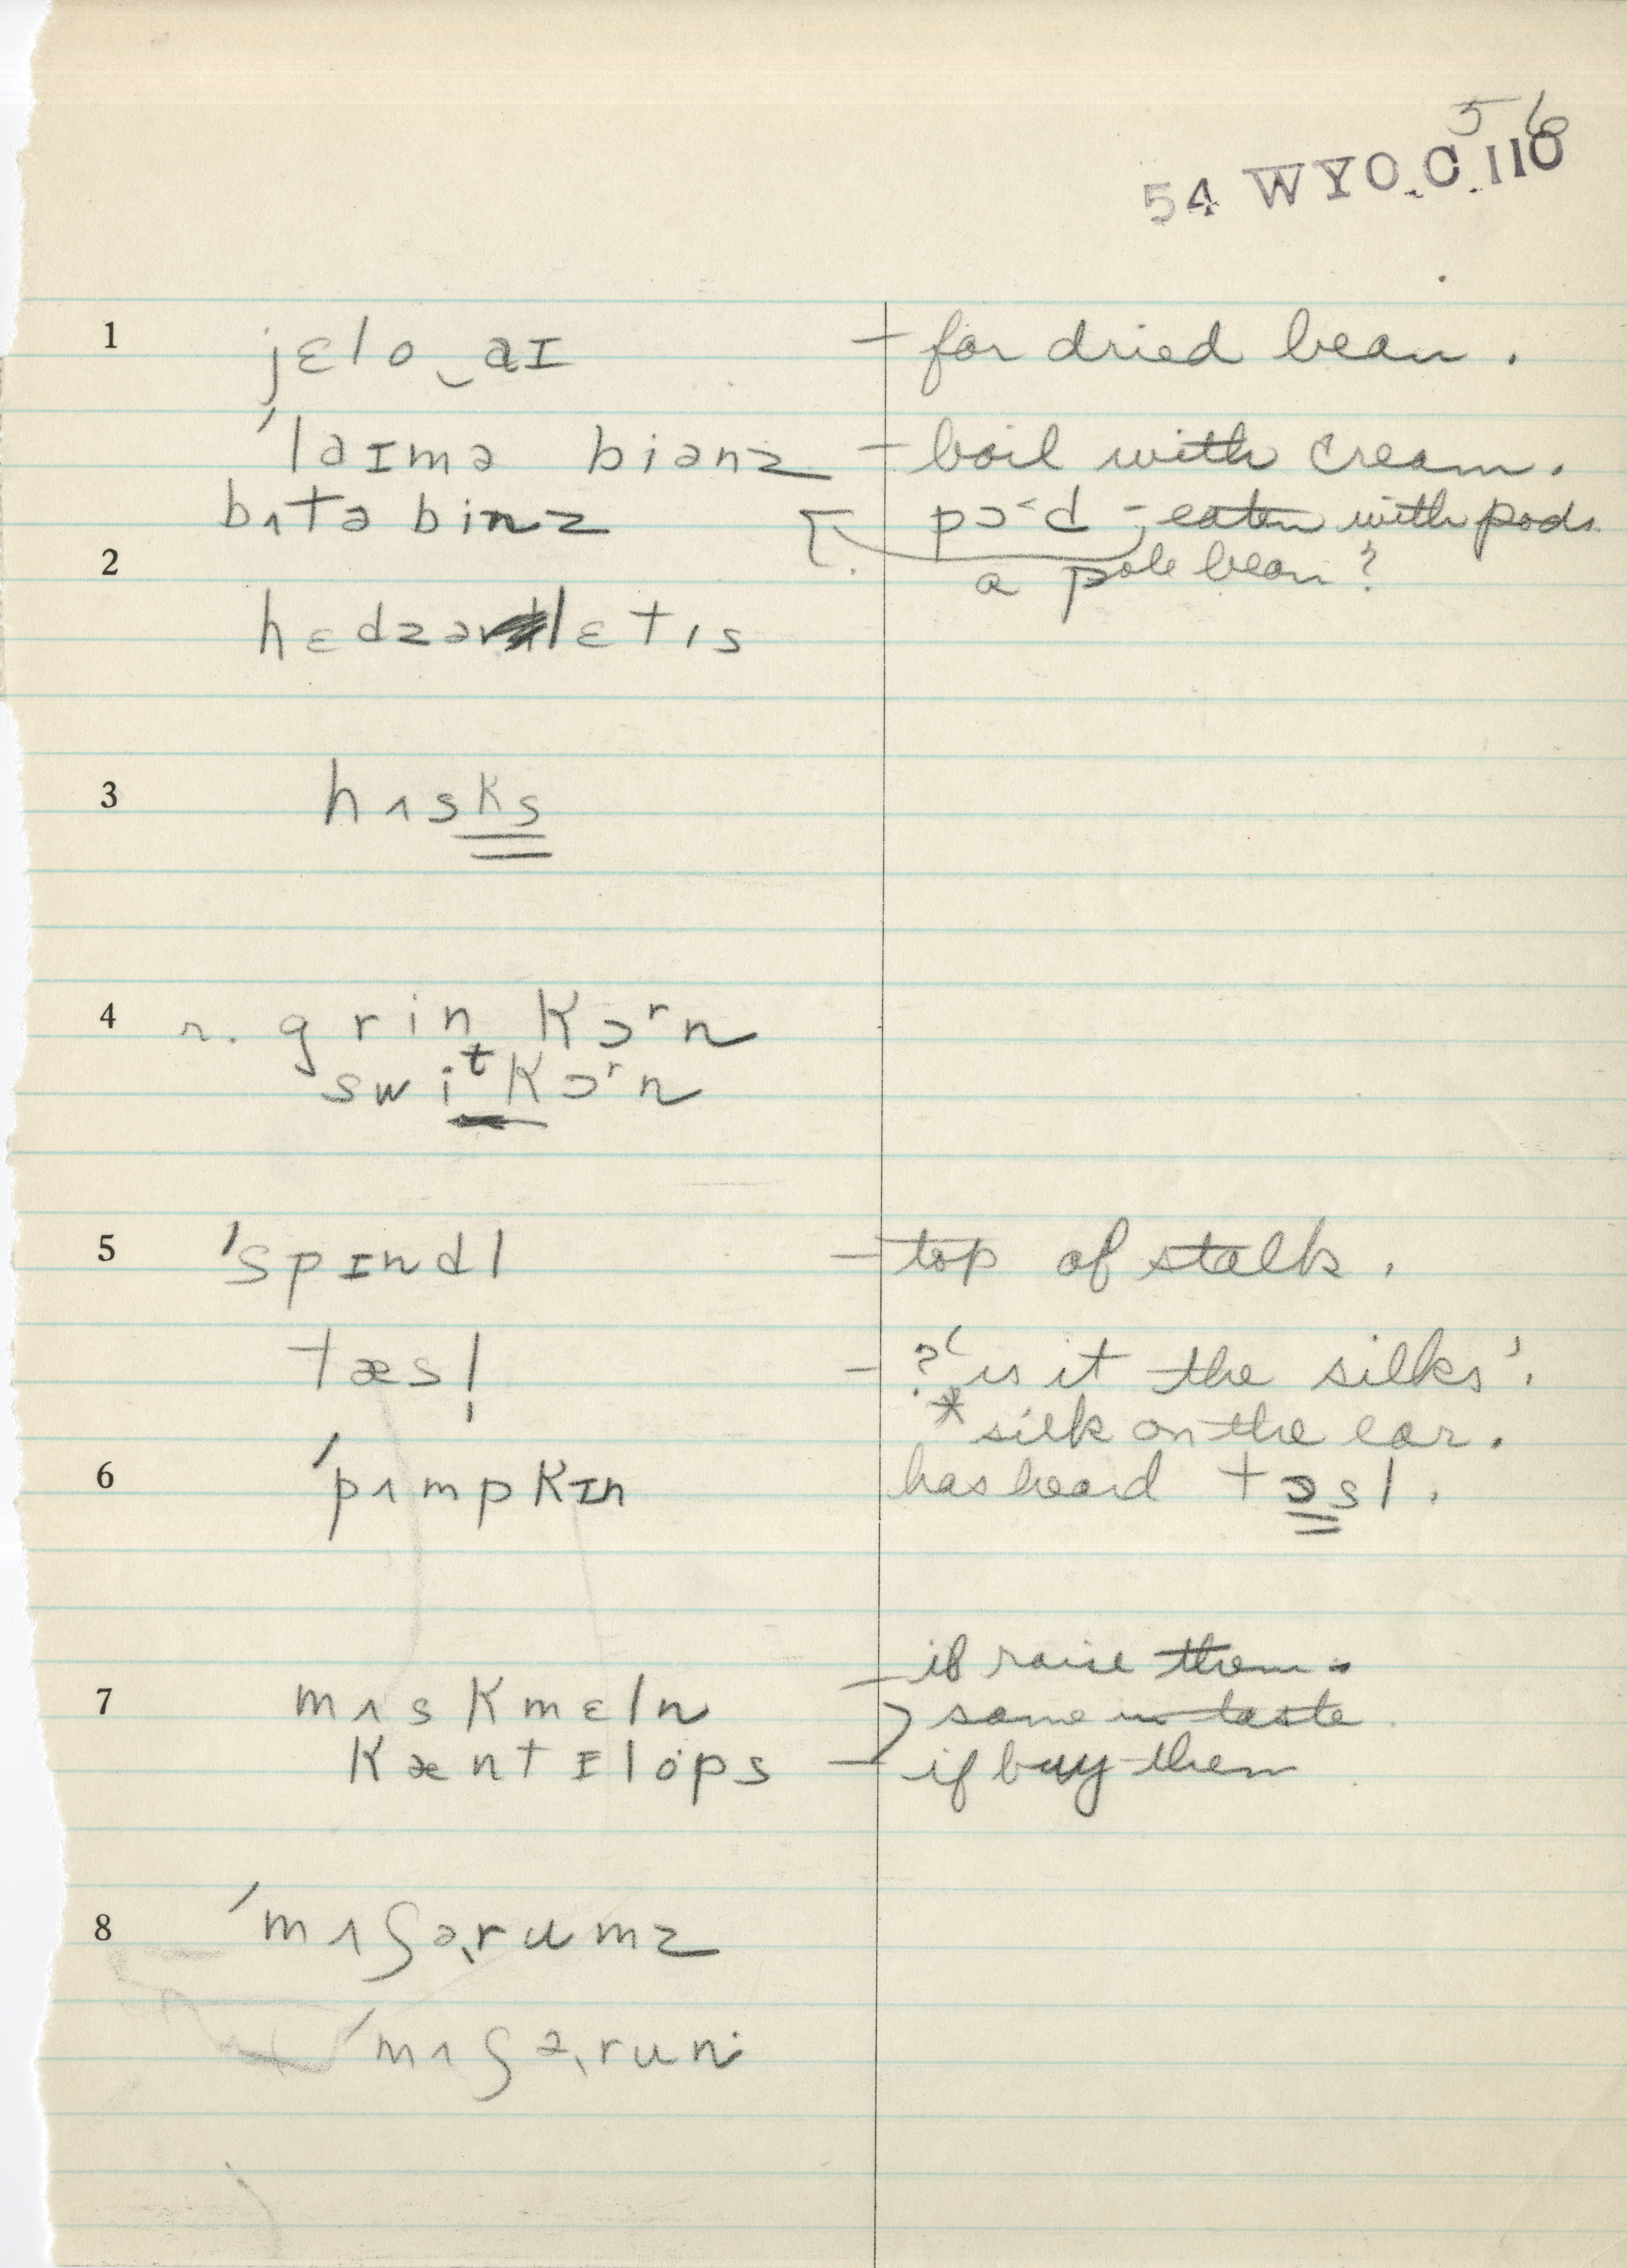 56
54 WYO.C.110
1 jɛlo‿aɪ – for dried bean.
ˈlaɪmə biənz – boil with cream.
bʌtə binz pɔ˂d – eaten with pods
2 a pole bean?
hɛdzərlɛtɪs
3 hʌsks
4 r. grin kɔʳn
swiᵗkɔʳn
5 ˈspɪndl – top of stalk.
tæsl̩ – ? 'is it the silks'.
* silk on the ear.
6 ˈpʌmpkɪn has heard tɔsl.
– if raise them.
7 mʌskmɛln same in taste.
kæntɪlops – if buy them
8 ˈmʌʃəˌrumz
ˈmʌʃəˌruni